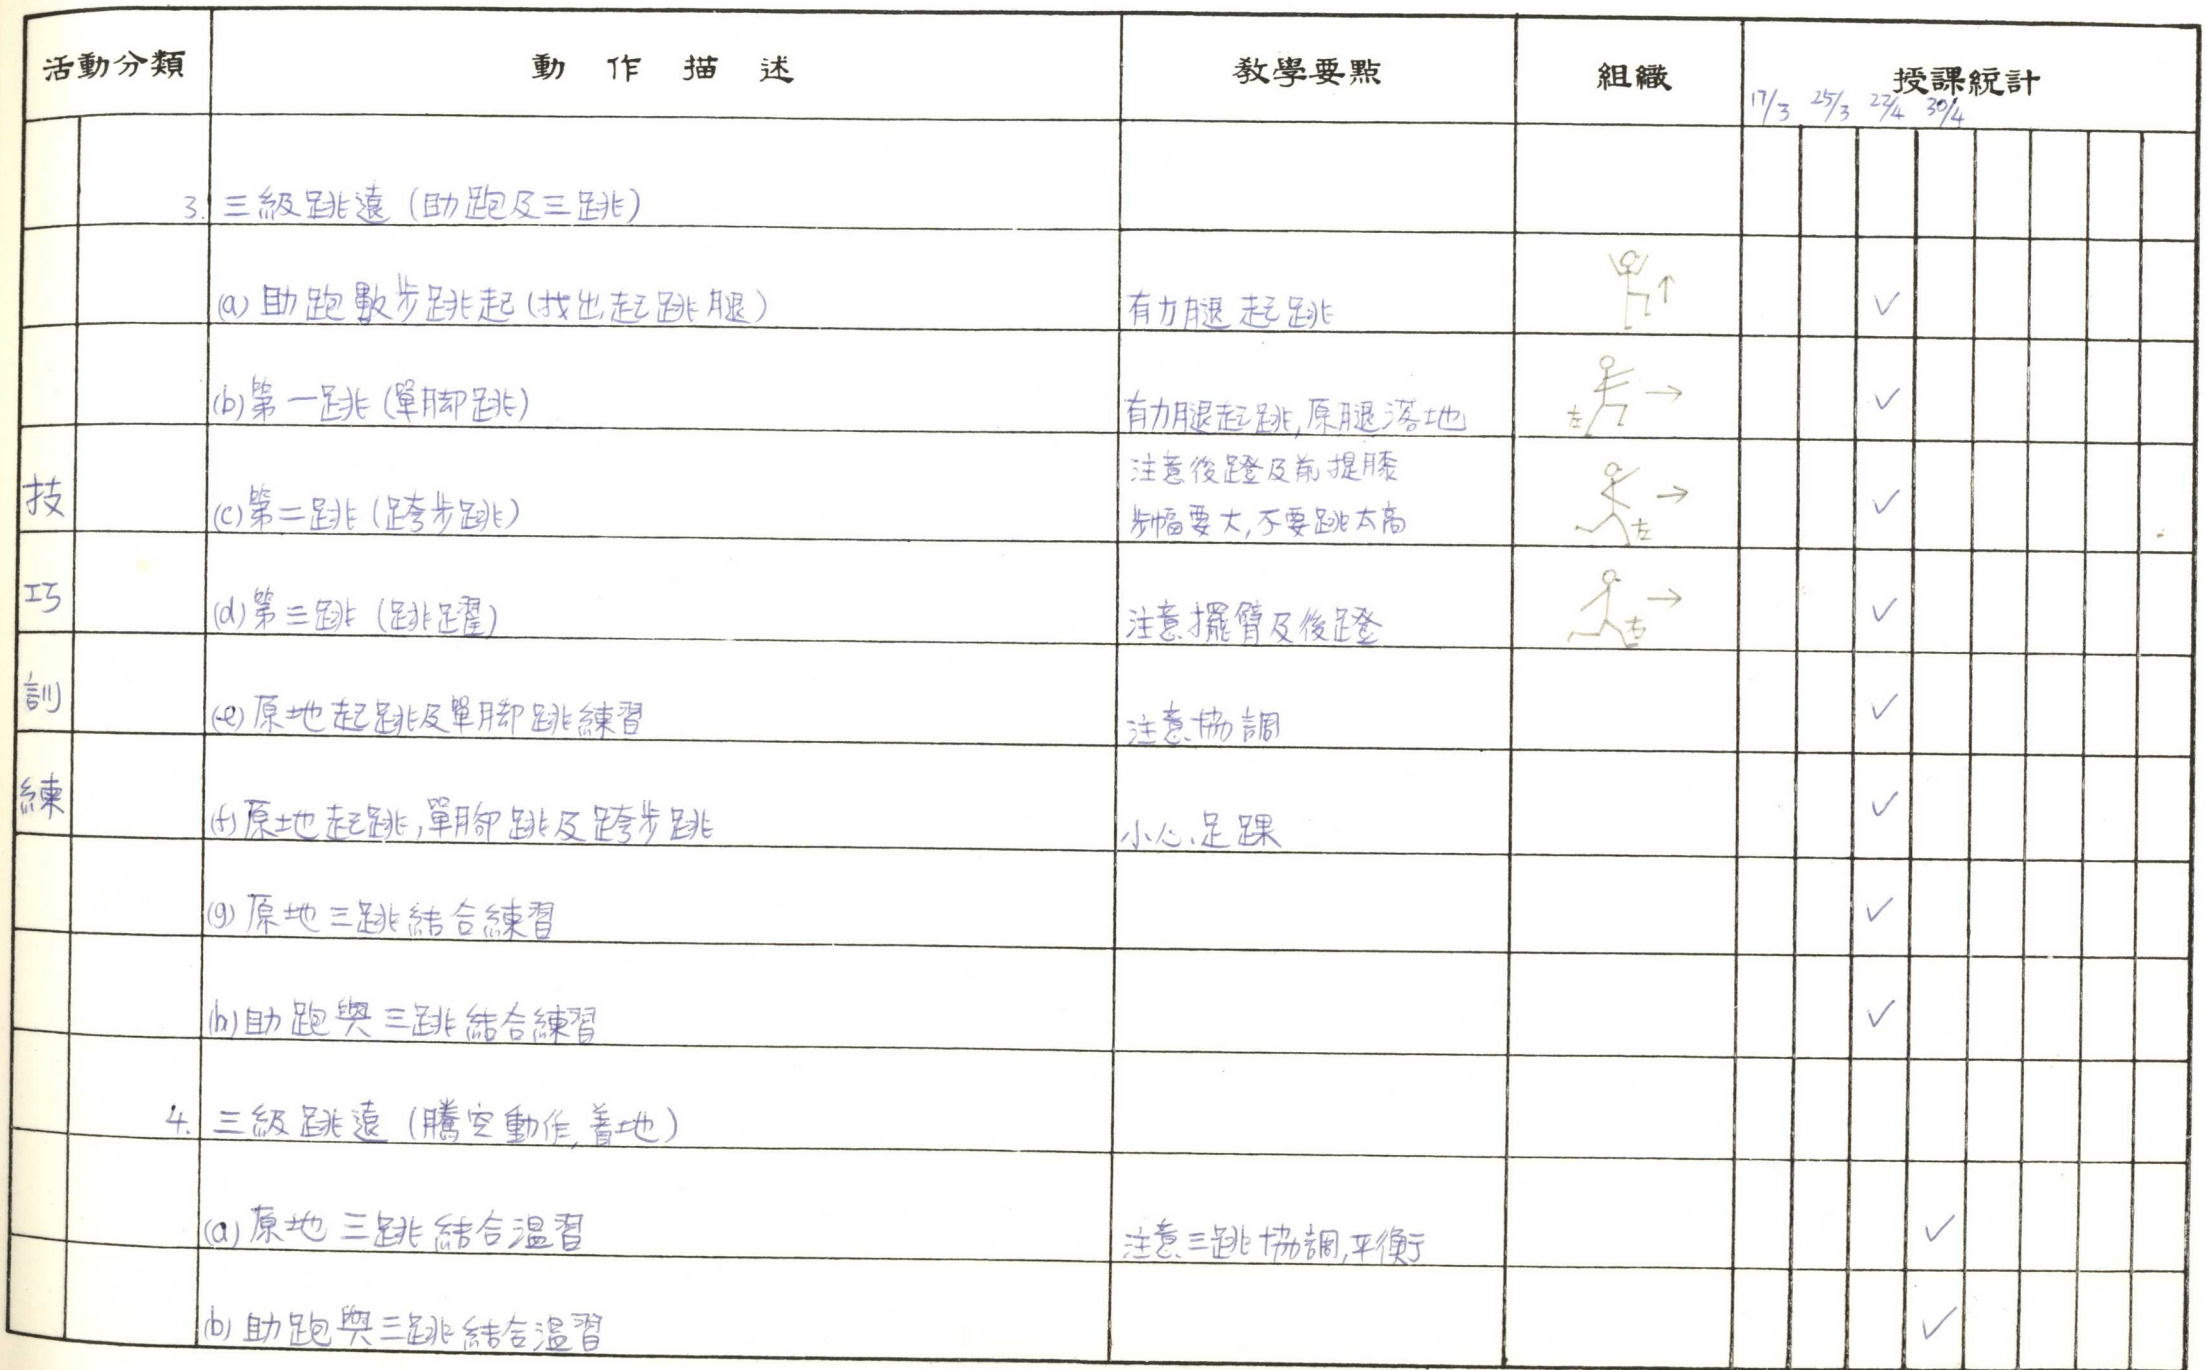 活動分類 動作描述 教學要點 組織 授課統計
17/3 25/3 22/4 30/4
3. 三級跳遠（助跑及三跳）
(a) 助跑數步跳起（找出起跳腿） 有力腿起跳 ✓
(b) 第一跳（單脚跳） 有力腿起跳,原腿落地 左 ✓
注意後蹬及前提膝
技 (c) 第二跳（跨步跳） 步幅要大,不要跳太高 左 ✓
巧 (d) 第三跳（跳躍） 注意擺臂及後蹬 右 ✓
訓 (e) 原地起跳及單脚跳練習 注意協調 ✓
練 (f) 原地起跳,單脚跳及跨步跳 小心足踝 ✓
(g) 原地三跳結合練習 ✓
(h) 助跑與三跳結合練習 ✓
4. 三級跳遠（騰空動作,着地）
(a) 原地三跳結合温習 注意三跳協調,平衡 ✓
(b) 助跑與三跳結合温習 ✓